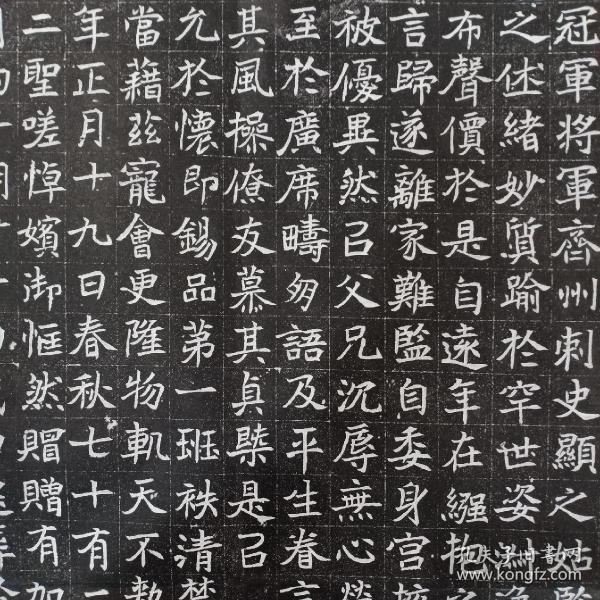 冠軍将軍齊州刺史顯之姑
之休緒妙質踰於罕世姿淵
布聲價於是自遠年在繦抱
言歸遂離家難監自委身宮
被優異然已父兄沉辱無心
至於廣席疇匆語及平生眷言
其風操僚友慕其貞槩是已
允於懷即錫品苐一班袟清禁
當藉茲寵會更隆物軌天不憖
年正月十九日春秋七十有
二聖嗟悼嬪御恇然賵贈有加
孔夫子旧书网
www.kongfz.com